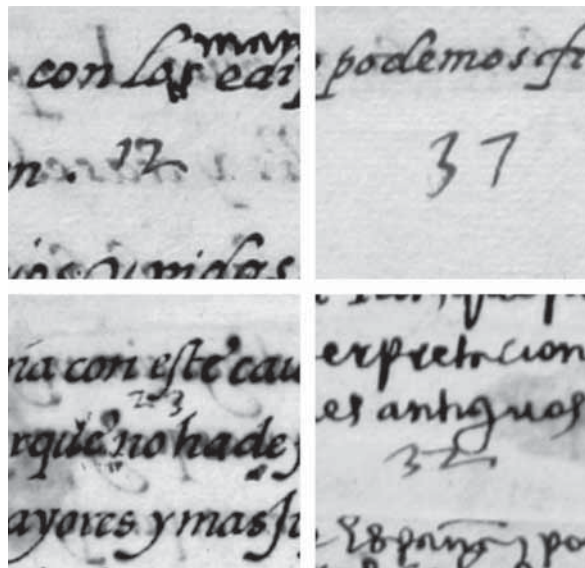 con los edi
man
n. 12
podemos
37
con este cau
23
rque no hade
ayores y mas
erpretacion
es antiguos
32
España, po